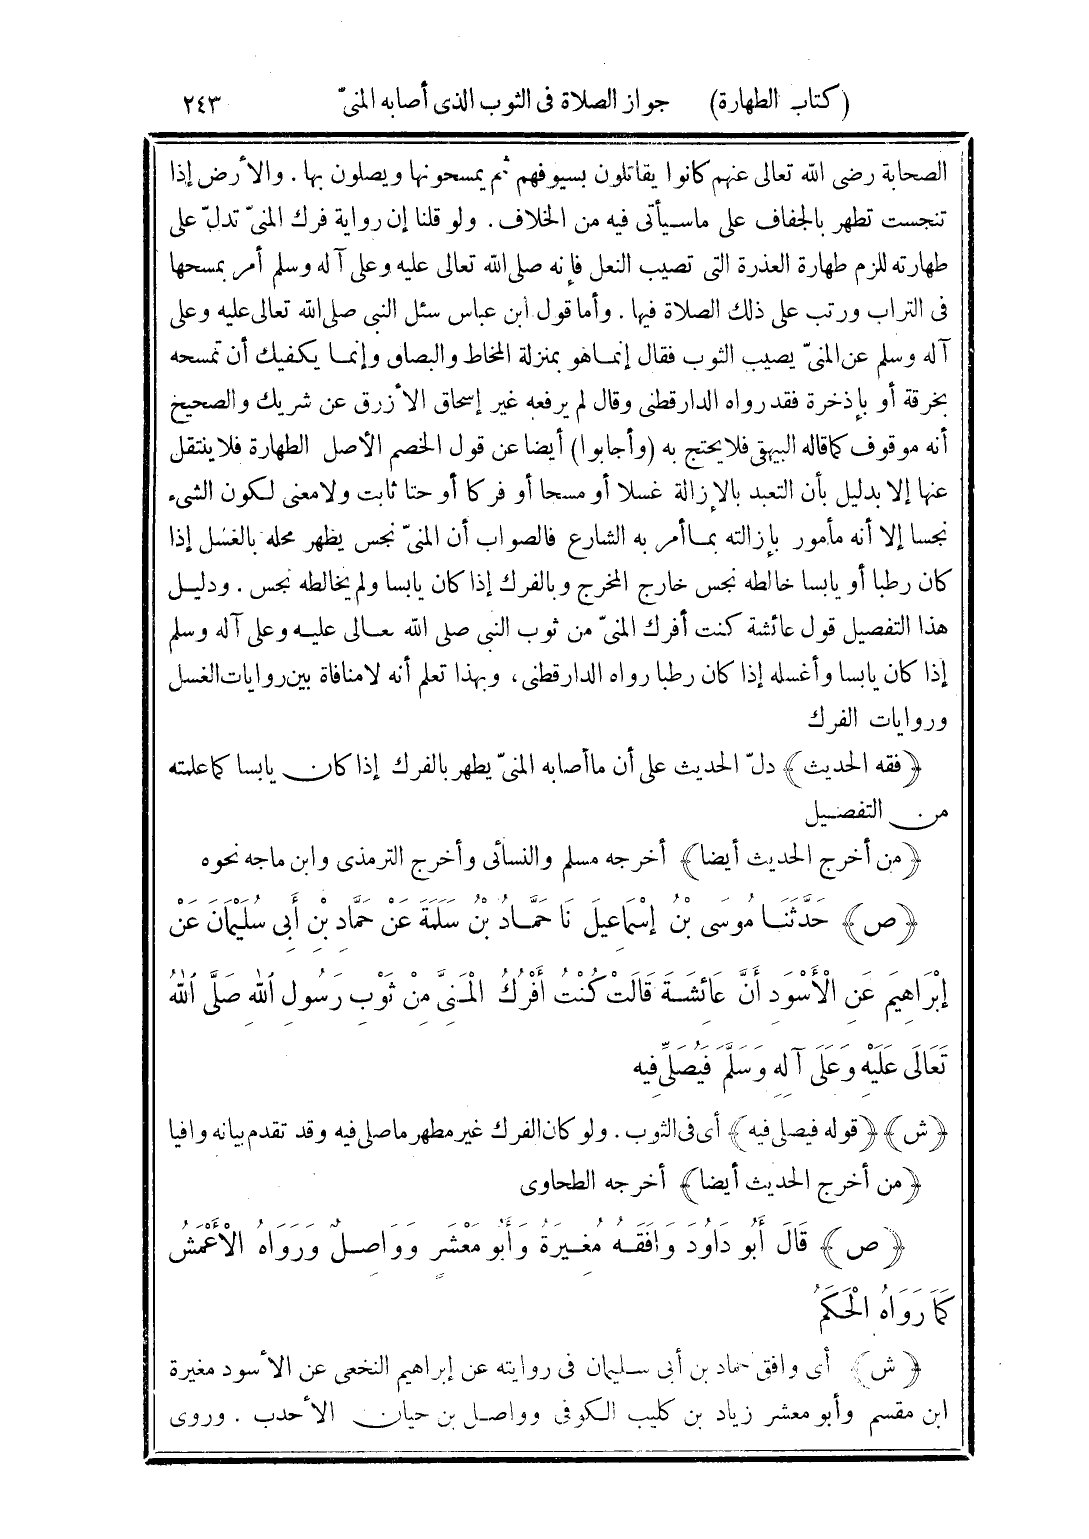 (كتاب الطهارة) جواز الصلاة فى الثوب الذى أصابه المنىّ ٢٤٣
الصحابة رضى الله تعالى عنهم كانوا يقاتلون بسيوفهم ثم يمسحونها ويصلون بها. والأرض إذا
تنجست تطهر بالجفاف على ماسيأتى فيه من الخلاف. ولو قلنا إن رواية فرك المنىّ تدلّ على
طهارته للزم طهارة العذرة التى تصيب النعل فإنه صلى الله تعالى عليه وعلى آله وسلم أمر بمسحها
فى التراب ورتب على ذلك الصلاة فيها. وأما قول ابن عباس سئل النبى صلى الله تعالى عليه وعلى
آله وسلم عن المنىّ يصيب الثوب فقال إنما هو بمنزلة المخاط والبصاق وإنما يكفيك أن تمسحه
بخرقة أو بإذخرة فقد رواه الدارقطنى وقال لم يرفعه غير إسحاق الأزرق عن شريك والصحيح
أنه موقوف كما قاله البيهقى فلا يحتج به (وأجابوا) أيضا عن قول الخصم الأصل الطهارة فلا ينتقل
عنها إلا بدليل بأن التعبد بالإزالة غسلا أو مسحا أو فركا أو حتا ثابت ولا معنى لكون الشىء
نجسا إلا أنه مأمور بإزالته بما أمر به الشارع فالصواب أن المنىّ نجس يطهر محله بالغسل إذا
كان رطبا أو يابسا خالطه نجس خارج المخرج وبالفرك إذا كان يابسا ولم يخالطه نجس. ودليل
هذا التفصيل قول عائشة كنت أفرك المنىّ من ثوب النبى صلى الله تعالى عليه وعلى آله وسلم
إذا كان يابسا وأغسله إذا كان رطبا رواه الدارقطنى، وبهذا تعلم أنه لا منافاة بين روايات الغسل
وروايات الفرك
﴿فقه الحديث﴾ دلّ الحديث على أن ما أصابه المنىّ يطهر بالفرك إذا كان يابسا كما علمته
من التفصيل
﴿من أخرج الحديث أيضا﴾ أخرجه مسلم والنسائى وأخرج الترمذى وابن ماجه نحوه
﴿ص﴾ حَدَّثَنَا مُوسَى بْنُ إِسْمَاعِيلَ نَا حَمَّادُ بْنُ سَلَمَةَ عَنْ حَمَّادِ بْنِ أَبِى سُلَيْمَانَ عَنْ
إِبْرَاهِيمَ عَنِ الْأَسْوَدِ أَنَّ عَائِشَةَ قَالَتْ كُنْتُ أَفْرُكُ الْمَنِىَّ مِنْ ثَوْبِ رَسُولِ اللهِ صَلَّى اللهُ
تَعَالَى عَلَيْهِ وَعَلَى آلِهِ وَسَلَّمَ فَيُصَلِّى فِيهِ
﴿ش﴾ ﴿قوله فيصلى فيه﴾ أى فى الثوب. ولو كان الفرك غير مطهر ما صلى فيه وقد تقدم بيانه وافيا
﴿من أخرج الحديث أيضا﴾ أخرجه الطحاوى
﴿ص﴾ قَالَ أَبُو دَاوُدَ وَافَقَهُ مُغِيرَةُ وَأَبُو مَعْشَرٍ وَوَاصِلٌ وَرَوَاهُ الْأَعْمَشُ
كَمَا رَوَاهُ الْحَكَمُ
﴿ش﴾ أى وافق حماد بن أبى سليمان فى روايته عن إبراهيم النخعى عن الأسود مغيرة
ابن مقسم وأبو معشر زياد بن كليب الكوفى وواصل بن حيان الأحدب. وروى